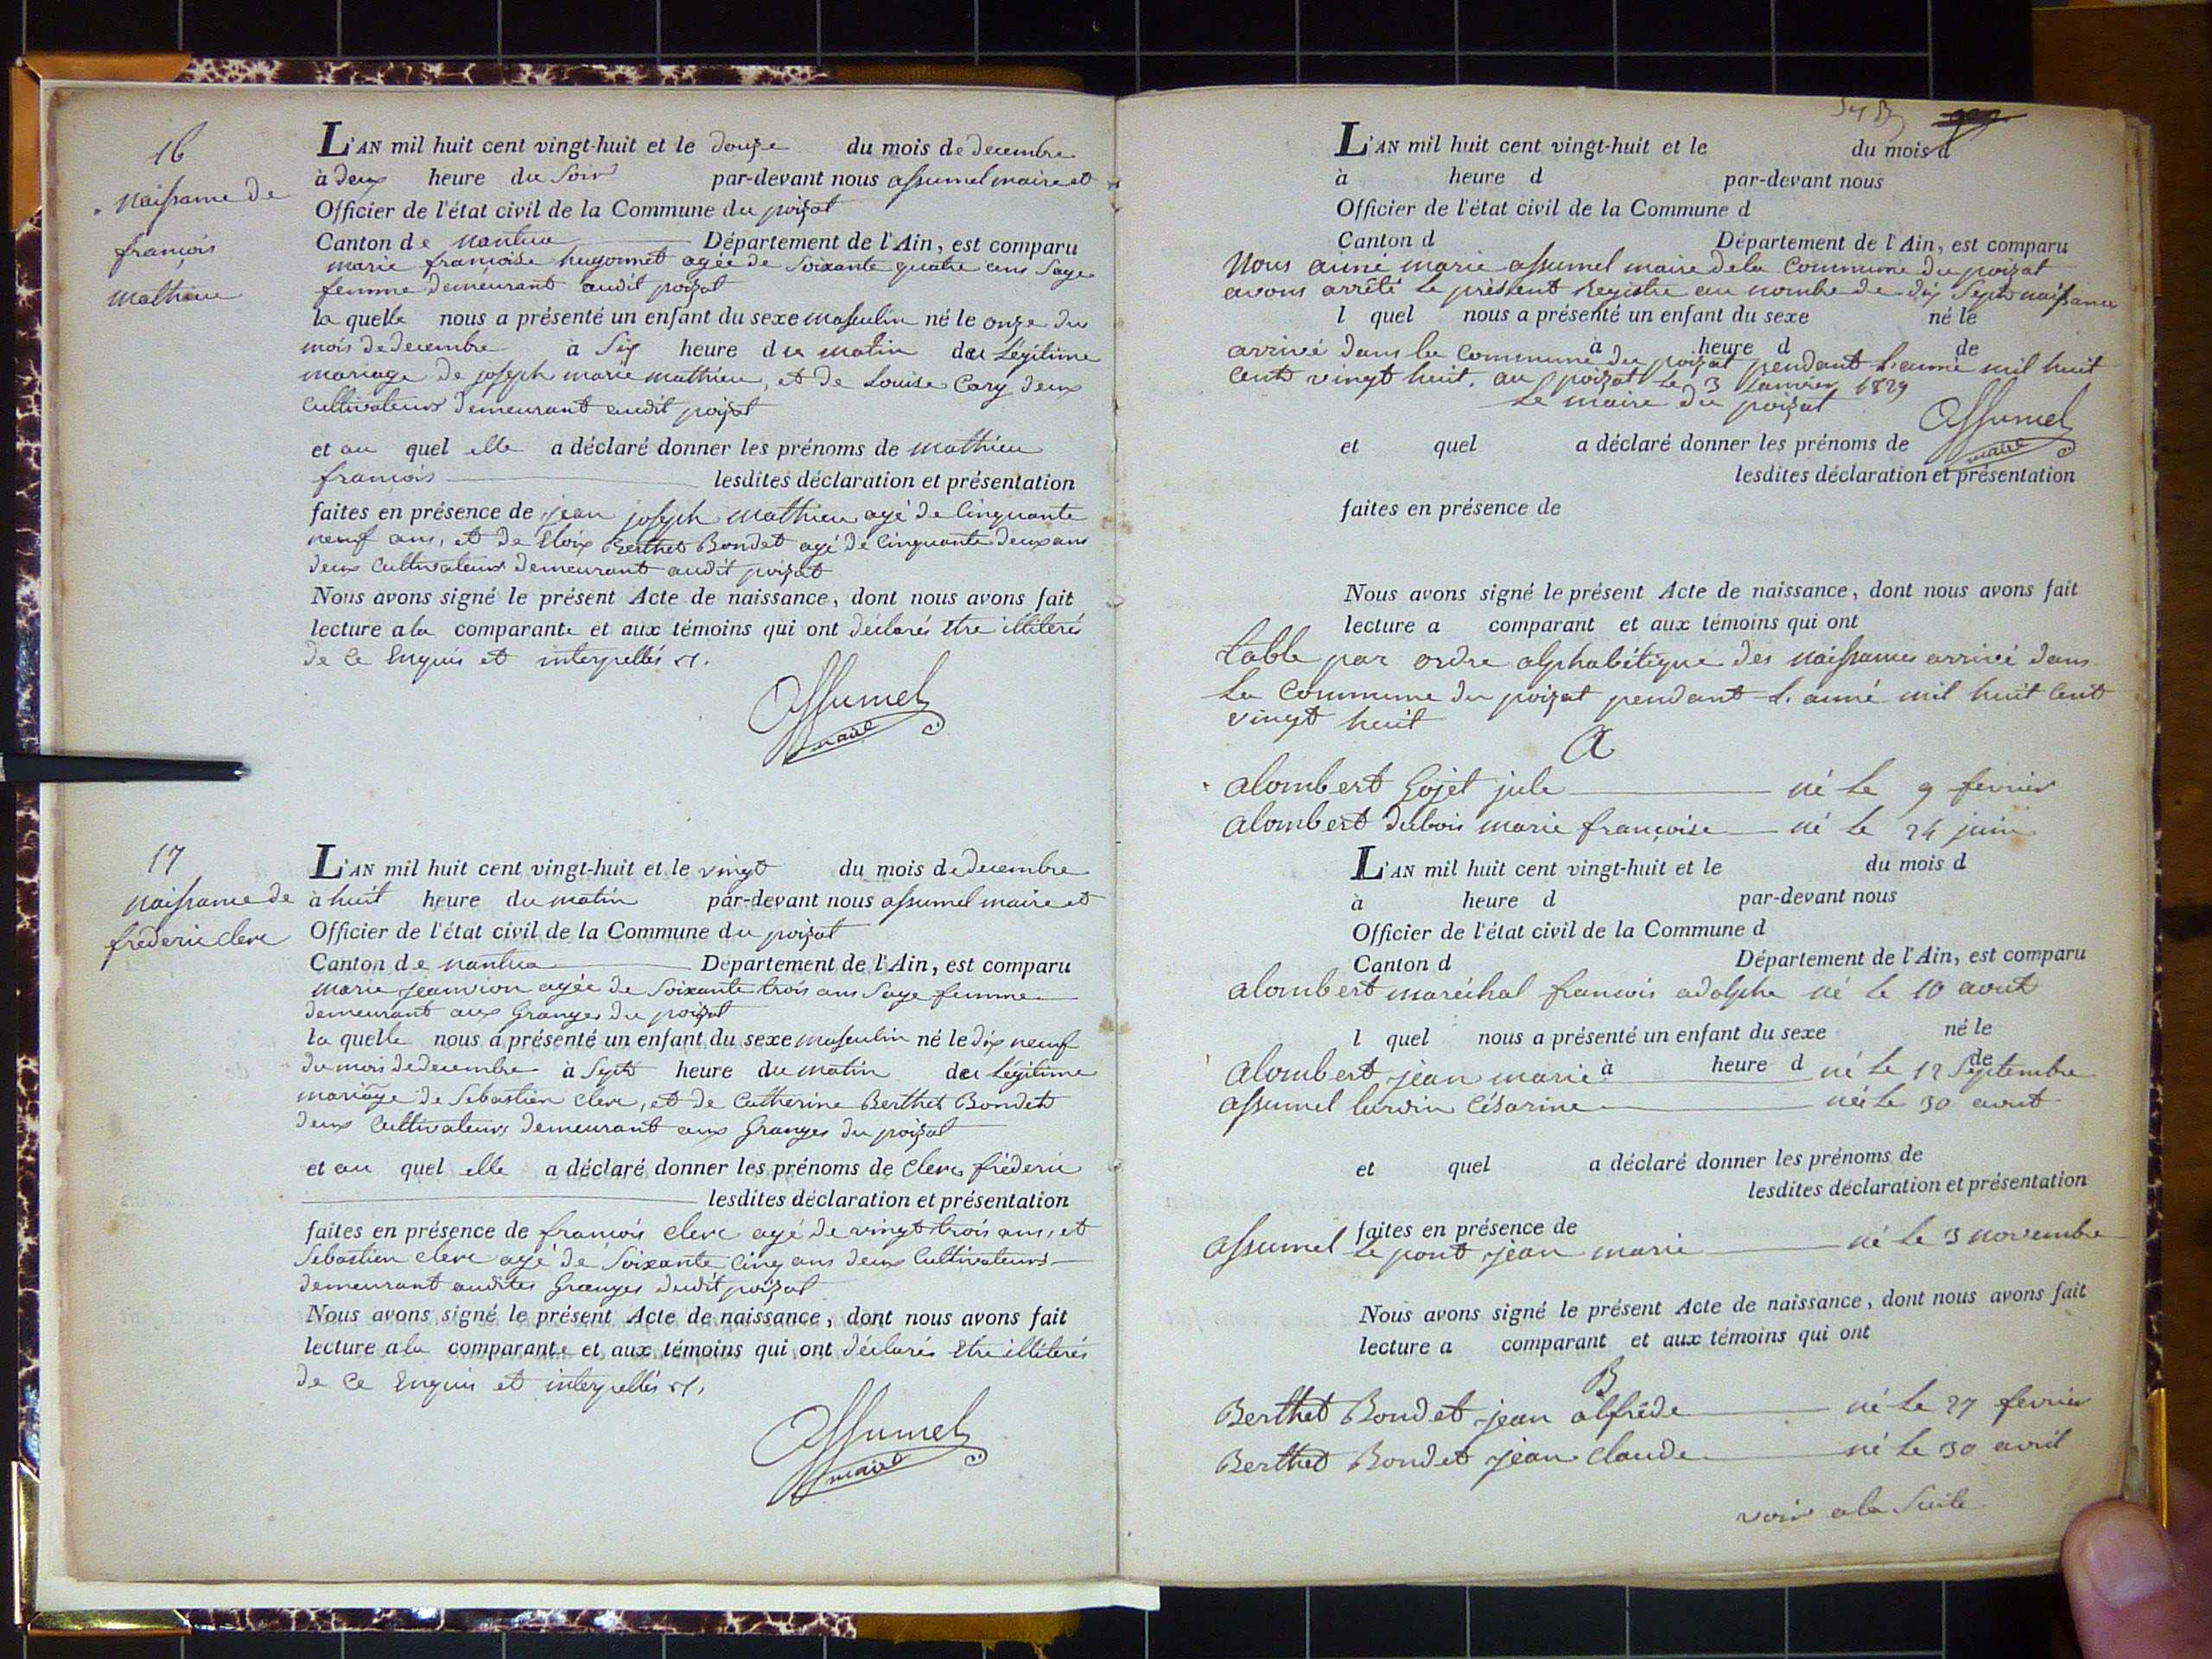 16
naissance de
françois
mathieu
L'AN mil huit cent vingt-huit et le douze du mois de decembre
à deux heure du soir par-devant nous assumel maire et
Officier de l'état civil de la Commune du poizat
Canton de nantua Département de l'Ain, est comparu
marie françoise hugonnet agée de soixante quatre ans sage
femme demeurant audit poizat
la quelle nous a présenté un enfant du sexe masculin né le onze du
mois de decembre à six heure du matin du légitime
mariage de joseph marie mathieu, et de Louise Cary deux
cultivateurs demeurant audit poizat
et au quel elle a déclaré donner les prénoms de mathieu
françois lesdites déclaration et présentation
faites en présence de jean joseph mathieu agé de cinquante
neuf ans, et de Eloix Berthet Bondet agé de cinquante deux ans
deux cultivateurs demeurant audit poizat
Nous avons signé le présent Acte de naissance, dont nous avons fait
lecture a la comparante et aux témoins qui ont déclarés être illiterés
de ce Enquis et interpellés
Assumel
maire
17
naissance de
fréderic clerc
L'AN mil huit cent vingt-huit et le vingt du mois de decembre
à huit heure du matin par-devant nous assumel maire et
Officier de l'état civil de la Commune du poizat
Canton de nantua Département de l'Ain, est comparu
marie jeanvion agée de soixante trois ans sage femme
demeurant aux Granges du poizat
la quelle nous a présenté un enfant du sexe masculin né le dix neuf
du mois de decembre à sept heure du matin du légitime
mariage de Sebastien clerc, et de Catherine Berthet Bondet
deux cultivateurs demeurant aux Granges du poizat
et au quel elle a déclaré donner les prénoms de clerc fréderic
lesdites déclaration et présentation
faites en présence de françois clerc agé de vingt trois ans, et
Sebastien clerc agé de soixante cinq ans deux cultivateurs
demeurant audites Granges dudit poizat
Nous avons signé le présent Acte de naissance, dont nous avons fait
lecture a la comparante et aux témoins qui ont déclarés être illiterés
de ce Enquis et interpellés
Assumel
maire
L'AN mil huit cent vingt-huit et le du mois d
à heure d par-devant nous
Officier de l'état civil de la Commune d
Canton d Département de l'Ain, est comparu
Nous aimé marie assumel maire de la Commune du poizat
avons arrêté le présent Registre au nombre de dix Sept naissance
l quel nous a présenté un enfant du sexe né le
à heure d de
arrivé dans la Commune du poizat pendant l'anné mil huit
cent vingt huit. au poizat le 3 Janvier 1829
Le maire du poizat
Assumel
maire
et quel a déclaré donner les prénoms de
lesdites déclaration et présentation
faites en présence de
Nous avons signé le présent Acte de naissance, dont nous avons fait
lecture a comparant et aux témoins qui ont
table par ordre alphabétique des naissances arrivé dans
la Commune du poizat pendant l'anné mil huit cent
vingt huit
A
alombert Gojet jule né le 9 fevrier
alombert dubois marie françoise né le 24 juin
L'AN mil huit cent vingt-huit et le du mois d
à heure d par-devant nous
Officier de l'état civil de la Commune d
Canton d Département de l'Ain, est comparu
alombert maréchal francois adolphe né le 10 aout
l quel nous a présenté un enfant du sexe né le
à heure d de
alombert jean marie né le 12 Septembre
assumel lurvin Césarine née le 30 avril
et quel a déclaré donner les prénoms de
lesdites déclaration et présentation
faites en présence de
assumel Le pont jean marie né le 3 novembre
Nous avons signé le présent Acte de naissance, dont nous avons fait
lecture a comparant et aux témoins qui ont
B
Berthet Bondet jean alfréde né le 27 fevrier
Berthet Bondet jean claude né le 30 avril
voir a la suite